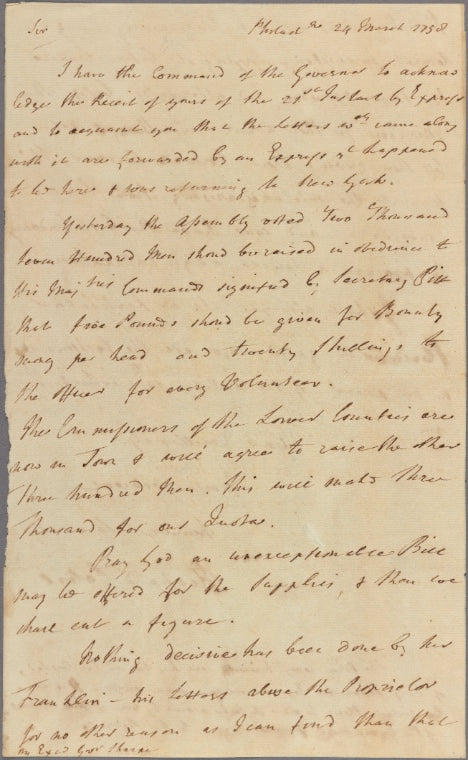 Sir Philad 24 March 1758
I have the Command of the Governor to acknow
ledge the Receit of yours of the 21st Instant by Express
and to acquaint you that the Letters wch came along
with it are forwarded by an Express yt happened
to be here & was returning to New York.
Yesterday the Assembly voted Two Thousand
seven Hundred Men shoud be raised in obedience to
His Majtties Commands signified by Secretary Pitt
that five Pounds shoud be given for Bounty
money per head and twenty Shillings to
the officer for every Volunteer.
The Commissioners of the Lower Counties are
now in Town & will agree to raise the other
three hundred Men. This will make three
thousand for our Quota.
Pray God an unexceptionable Bill
may be offered for the Supplies, & then we
shall cut a figure.
Nothing decisive has been done by
Franklin – his Letters abuse the Proprietor
for no other reason as I can find than that
Gov Sharpe